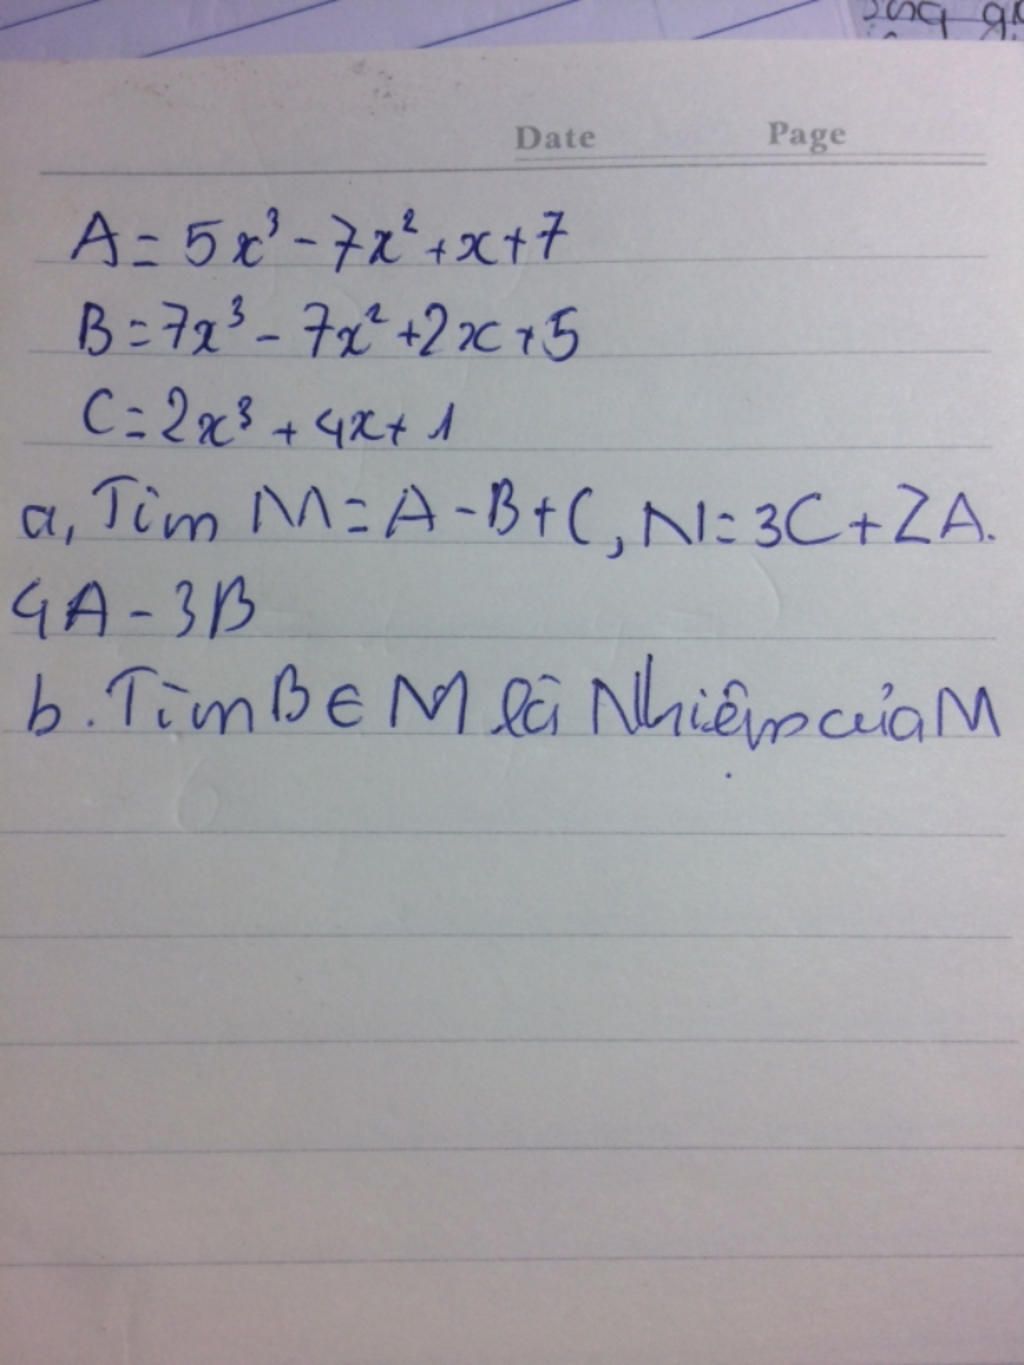 Date Page
A = 5x³ - 7x² + x + 7
B = 7x³ - 7x² + 2x + 5
C = 2x³ + 4x + 1
a, Tìm M = A - B + C, N = 3C + 2A.
4A - 3B
b. Tìm B ∈ M là Nhiệm của M